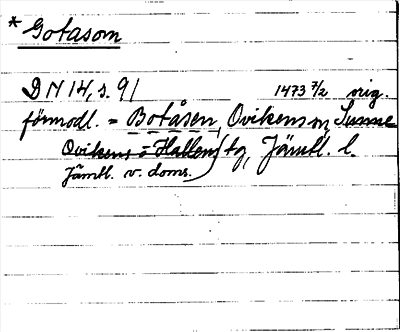 * Gotasom
DN 14, s. 91 1473 7/2 orig.
förmodl. = Botåsen, Ovikens sn, Sunne
Ovikens o Hallens tg, Jämtl. l.
Jämtl. v. doms.